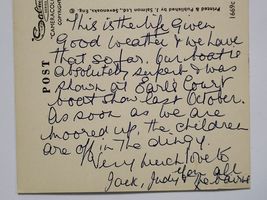 This is the life Given
Good weather & we have
that so far. Our boat is
absolutely superb & was
shown at Earls Court
boat show last October.
As soon as we are
moored up, the children
are off in the dingy.
Very much love to
you all
Jack, Judy & the
POST
Printed & Published by J. Salmon Ltd., Sevenoaks, Eng.
1669c
"CAMERACOLOUR
COPYRIGHT